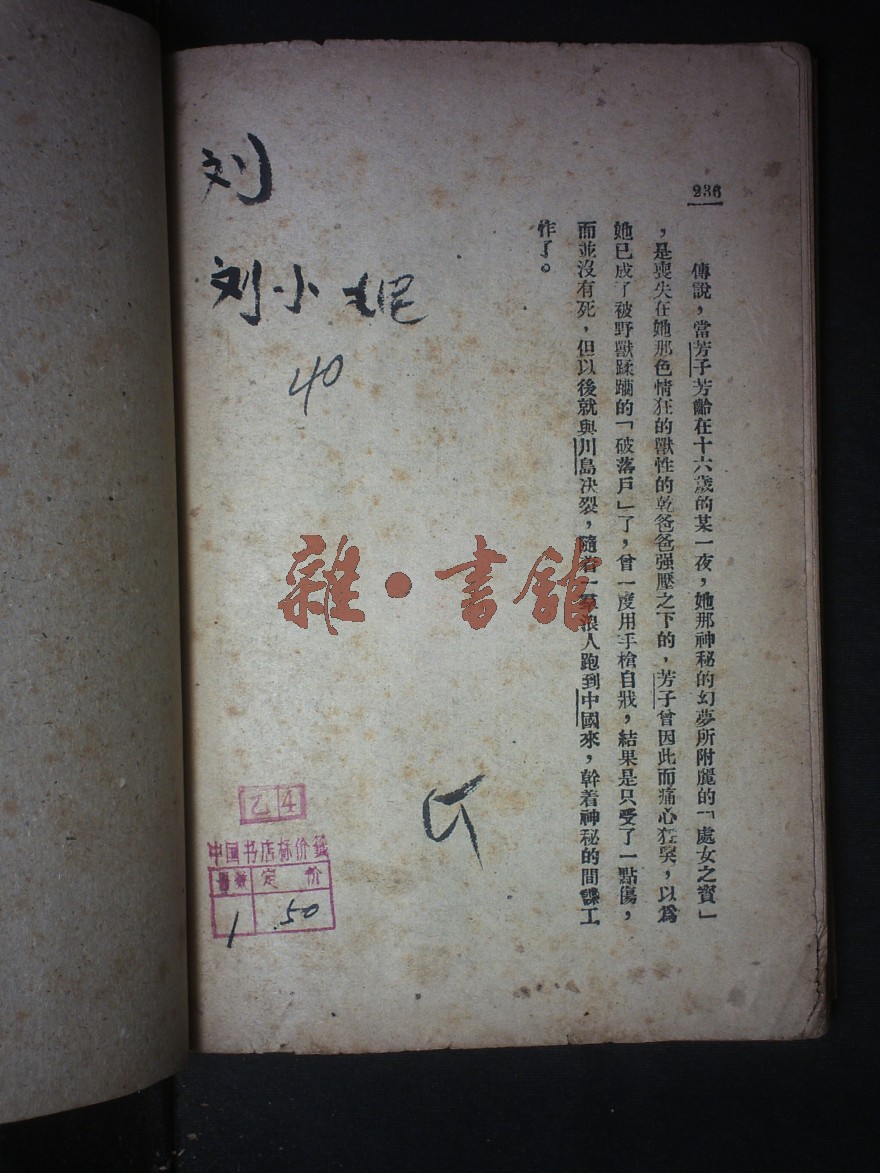 236
傳說,當芳子芳齡在十六歲的某一夜,她那神秘的幻夢所附麗的「處女之寶」
,是喪失在她那色情狂的獸性的乾爸爸强壓之下的,芳子曾因此而痛心狂哭,以爲
她已成了被野獸蹂躪的「破落戶」了,曾一度用手槍自戕,結果是只受了一點傷,
而並沒有死,但以後就與川島决裂,隨着一羣浪人跑到中國來,幹着神秘的間諜工
作了。
刘
刘小妮
40
雜·書館
乙4
中国书店标价签
定价
1 50